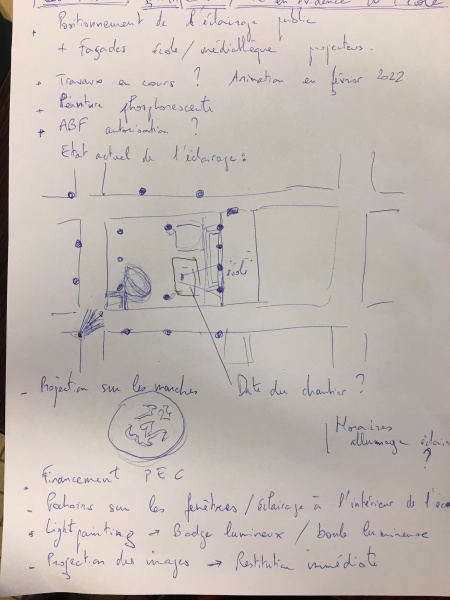 en évidence de l'école
+ Positionnement de l'éclairage public
+ Façades école / médiathèque projecteurs.
+ Travaux en cours ? Animation en février 2022
+ Peinture phosphorescente
+ ABF autorisation ?
Etat actuel de l'éclairage :
école
- Projection sur les marches
Date du chantier ?
Horaires
allumage éclair
?
- Financement PEC
- Pochoirs sur les fenêtres / éclairage à l'intérieur de l'éc
- Lightpainting → Badge lumineux / boule lumineuse
- Projection des images → Restitution immédiate